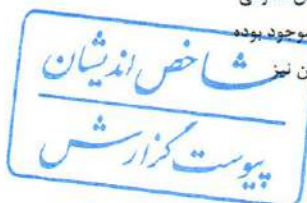 موجود بوده
ن نیز
شاخص اندیشان
پیوست گزارش